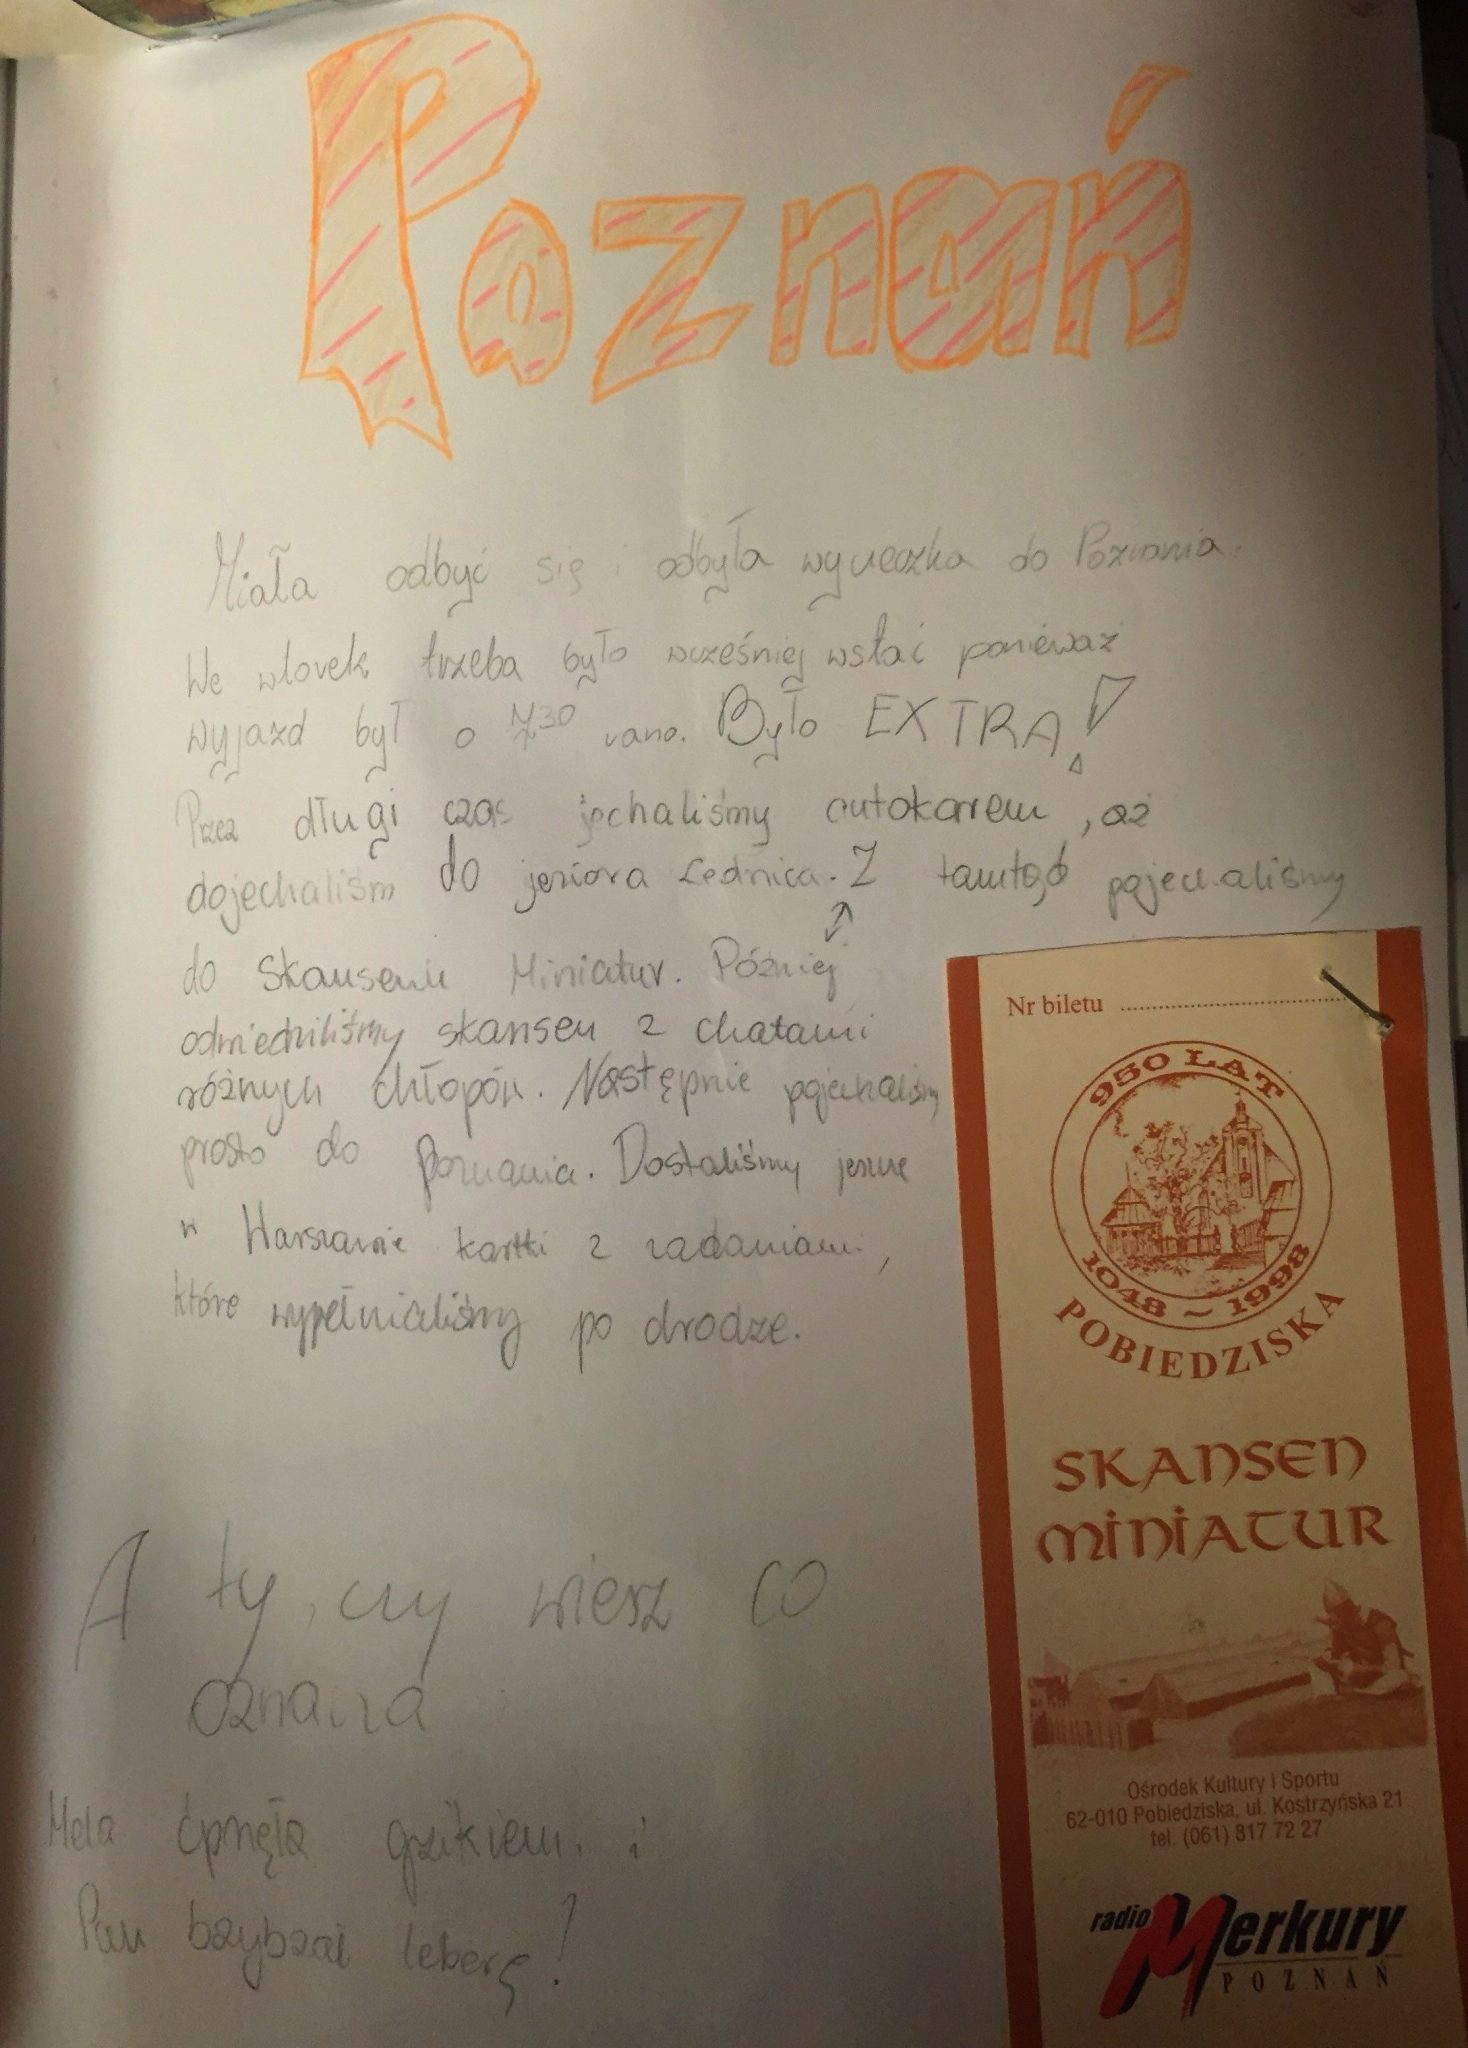 Poznań
Miała odbyć się i odbyła wycieczka do Poznania.
We wtorek trzeba było wcześniej wstać ponieważ
wyjazd był o 7³⁰ rano. Było EXTRA!
Przez długi czas jechaliśmy autokarem, aż
dojechaliśm do jeziora Lednica. Z tamtąd pojechaliśmy
do Skansenu Miniatur. Później
odwiedziliśmy skansen z chatami
różnych chłopów. Następnie pojechaliśmy
prosto do Poznania. Dostaliśmy jeszcze
w Warszawie kartki z zadaniami,
które wypełnialiśmy po drodze.
A ty, czy wiesz co
oznacza
Mela ćpnęła gzikiem i
Pan bzybzał leberę?
Nr biletu
950 LAT
1048 ~ 1998
POBIEDZISKA
SKANSEN
MINIATUR
Ośrodek Kultury i Sportu
62-010 Pobiedziska, ul. Kostrzyńska 21
tel. (061) 817 72 27
radio Merkury
POZNAŃ